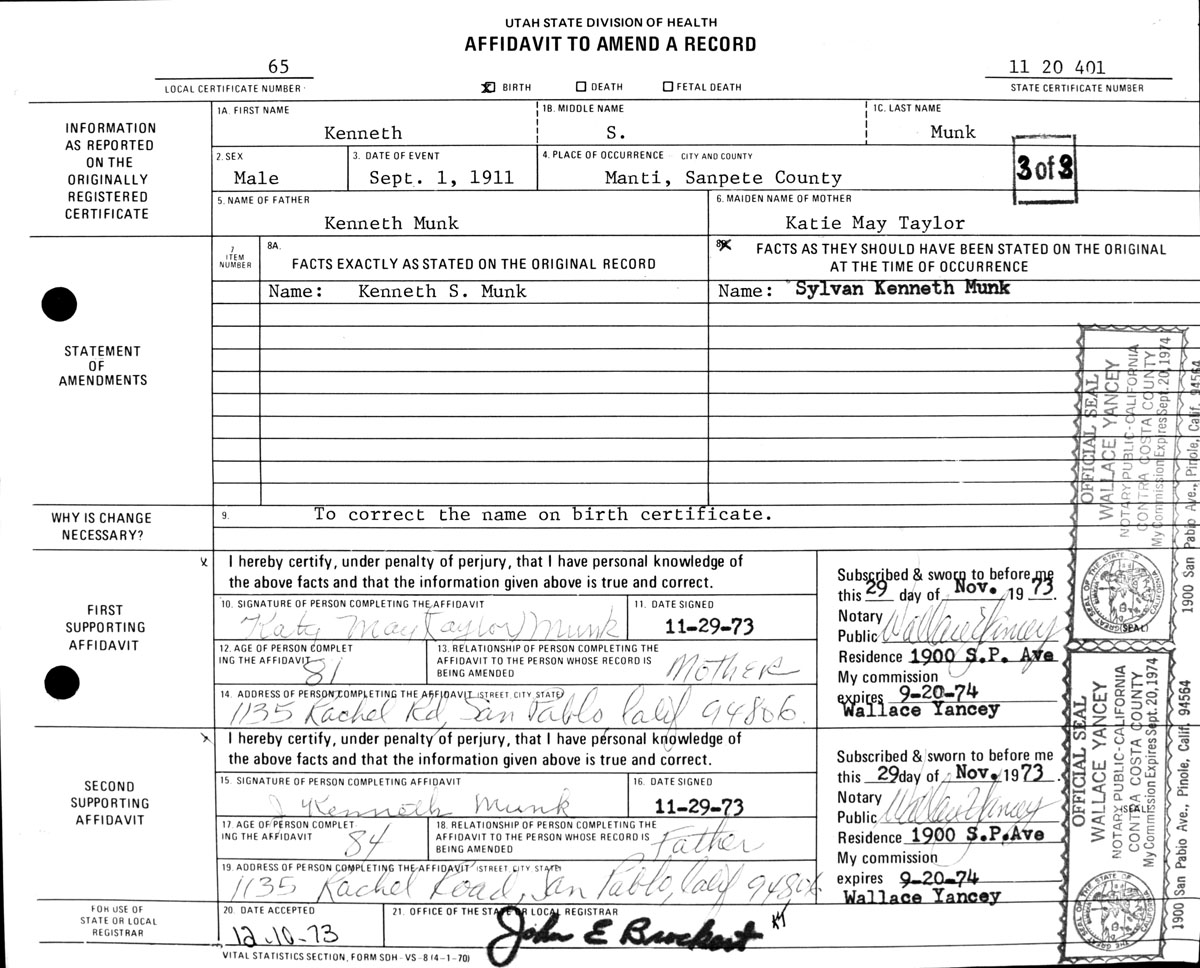 UTAH STATE DIVISION OF HEALTH
AFFIDAVIT TO AMEND A RECORD
65
LOCAL CERTIFICATE NUMBER
BIRTH DEATH FETAL DEATH
11 20 401
STATE CERTIFICATE NUMBER
INFORMATION
AS REPORTED
ON THE
ORIGINALLY
REGISTERED
CERTIFICATE
1A. FIRST NAME
Kenneth
1B. MIDDLE NAME
S.
1C. LAST NAME
Munk
2. SEX
Male
3. DATE OF EVENT
Sept. 1, 1911
4. PLACE OF OCCURRENCE CITY AND COUNTY
Manti, Sanpete County
3 of 3
5. NAME OF FATHER
Kenneth Munk
6. MAIDEN NAME OF MOTHER
Katie May Taylor
STATEMENT
OF
AMENDMENTS
7
ITEM
NUMBER
8A.
FACTS EXACTLY AS STATED ON THE ORIGINAL RECORD
FACTS AS THEY SHOULD HAVE BEEN STATED ON THE ORIGINAL
AT THE TIME OF OCCURRENCE
Name: Kenneth S. Munk
Name: Sylvan Kenneth Munk
WHY IS CHANGE
NECESSARY?
9.
To correct the name on birth certificate.
FIRST
SUPPORTING
AFFIDAVIT
x
I hereby certify, under penalty of perjury, that I have personal knowledge of
the above facts and that the information given above is true and correct.
10. SIGNATURE OF PERSON COMPLETING THE AFFIDAVIT
Katy May (Taylor) Munk
11. DATE SIGNED
11-29-73
12. AGE OF PERSON COMPLET
ING THE AFFIDAVIT
81
13. RELATIONSHIP OF PERSON COMPLETING THE
AFFIDAVIT TO THE PERSON WHOSE RECORD IS
BEING AMENDED
Mother
14. ADDRESS OF PERSON COMPLETING THE AFFIDAVIT (STREET, CITY, STATE)
1135 Rachel Rd, San Pablo Calif 94806.
Subscribed & sworn to before me
this 29 day of Nov. 1973.
Notary
Public Wallace Yancey
(SEAL)
Residence 1900 S.P. Ave
My commission
expires 9-20-74
Wallace Yancey
SECOND
SUPPORTING
AFFIDAVIT
x
I hereby certify, under penalty of perjury, that I have personal knowledge of
the above facts and that the information given above is true and correct.
15. SIGNATURE OF PERSON COMPLETING AFFIDAVIT
J Kenneth Munk
16. DATE SIGNED
11-29-73
17. AGE OF PERSON COMPLET
ING THE AFFIDAVIT
84
18. RELATIONSHIP OF PERSON COMPLETING THE
AFFIDAVIT TO THE PERSON WHOSE RECORD IS
BEING AMENDED
Father
19. ADDRESS OF PERSON COMPLETING THE AFFIDAVIT (STREET, CITY, STATE)
1135 Rachel Road, San Pablo, Calif 94806
Subscribed & sworn to before me
this 29 day of Nov. 1973
Notary
Public Wallace Yancey
(SEAL)
Residence 1900 S.P. Ave
My commission
expires 9-20-74
Wallace Yancey
OFFICIAL SEAL
WALLACE YANCEY
NOTARY PUBLIC-CALIFORNIA
CONTRA COSTA COUNTY
My Commission Expires Sept. 20, 1974
1900 San Pablo Ave., Pinole, Calif. 94564
OFFICIAL SEAL
WALLACE YANCEY
NOTARY PUBLIC-CALIFORNIA
CONTRA COSTA COUNTY
My Commission Expires Sept. 20, 1974
1900 San Pablo Ave., Pinole, Calif. 94564
FOR USE OF
STATE OR LOCAL
REGISTRAR
20. DATE ACCEPTED
12.10.73
21. OFFICE OF THE STATE OR LOCAL REGISTRAR
John E Brockert
VITAL STATISTICS SECTION, FORM SDH-VS-8 (4-1-70)